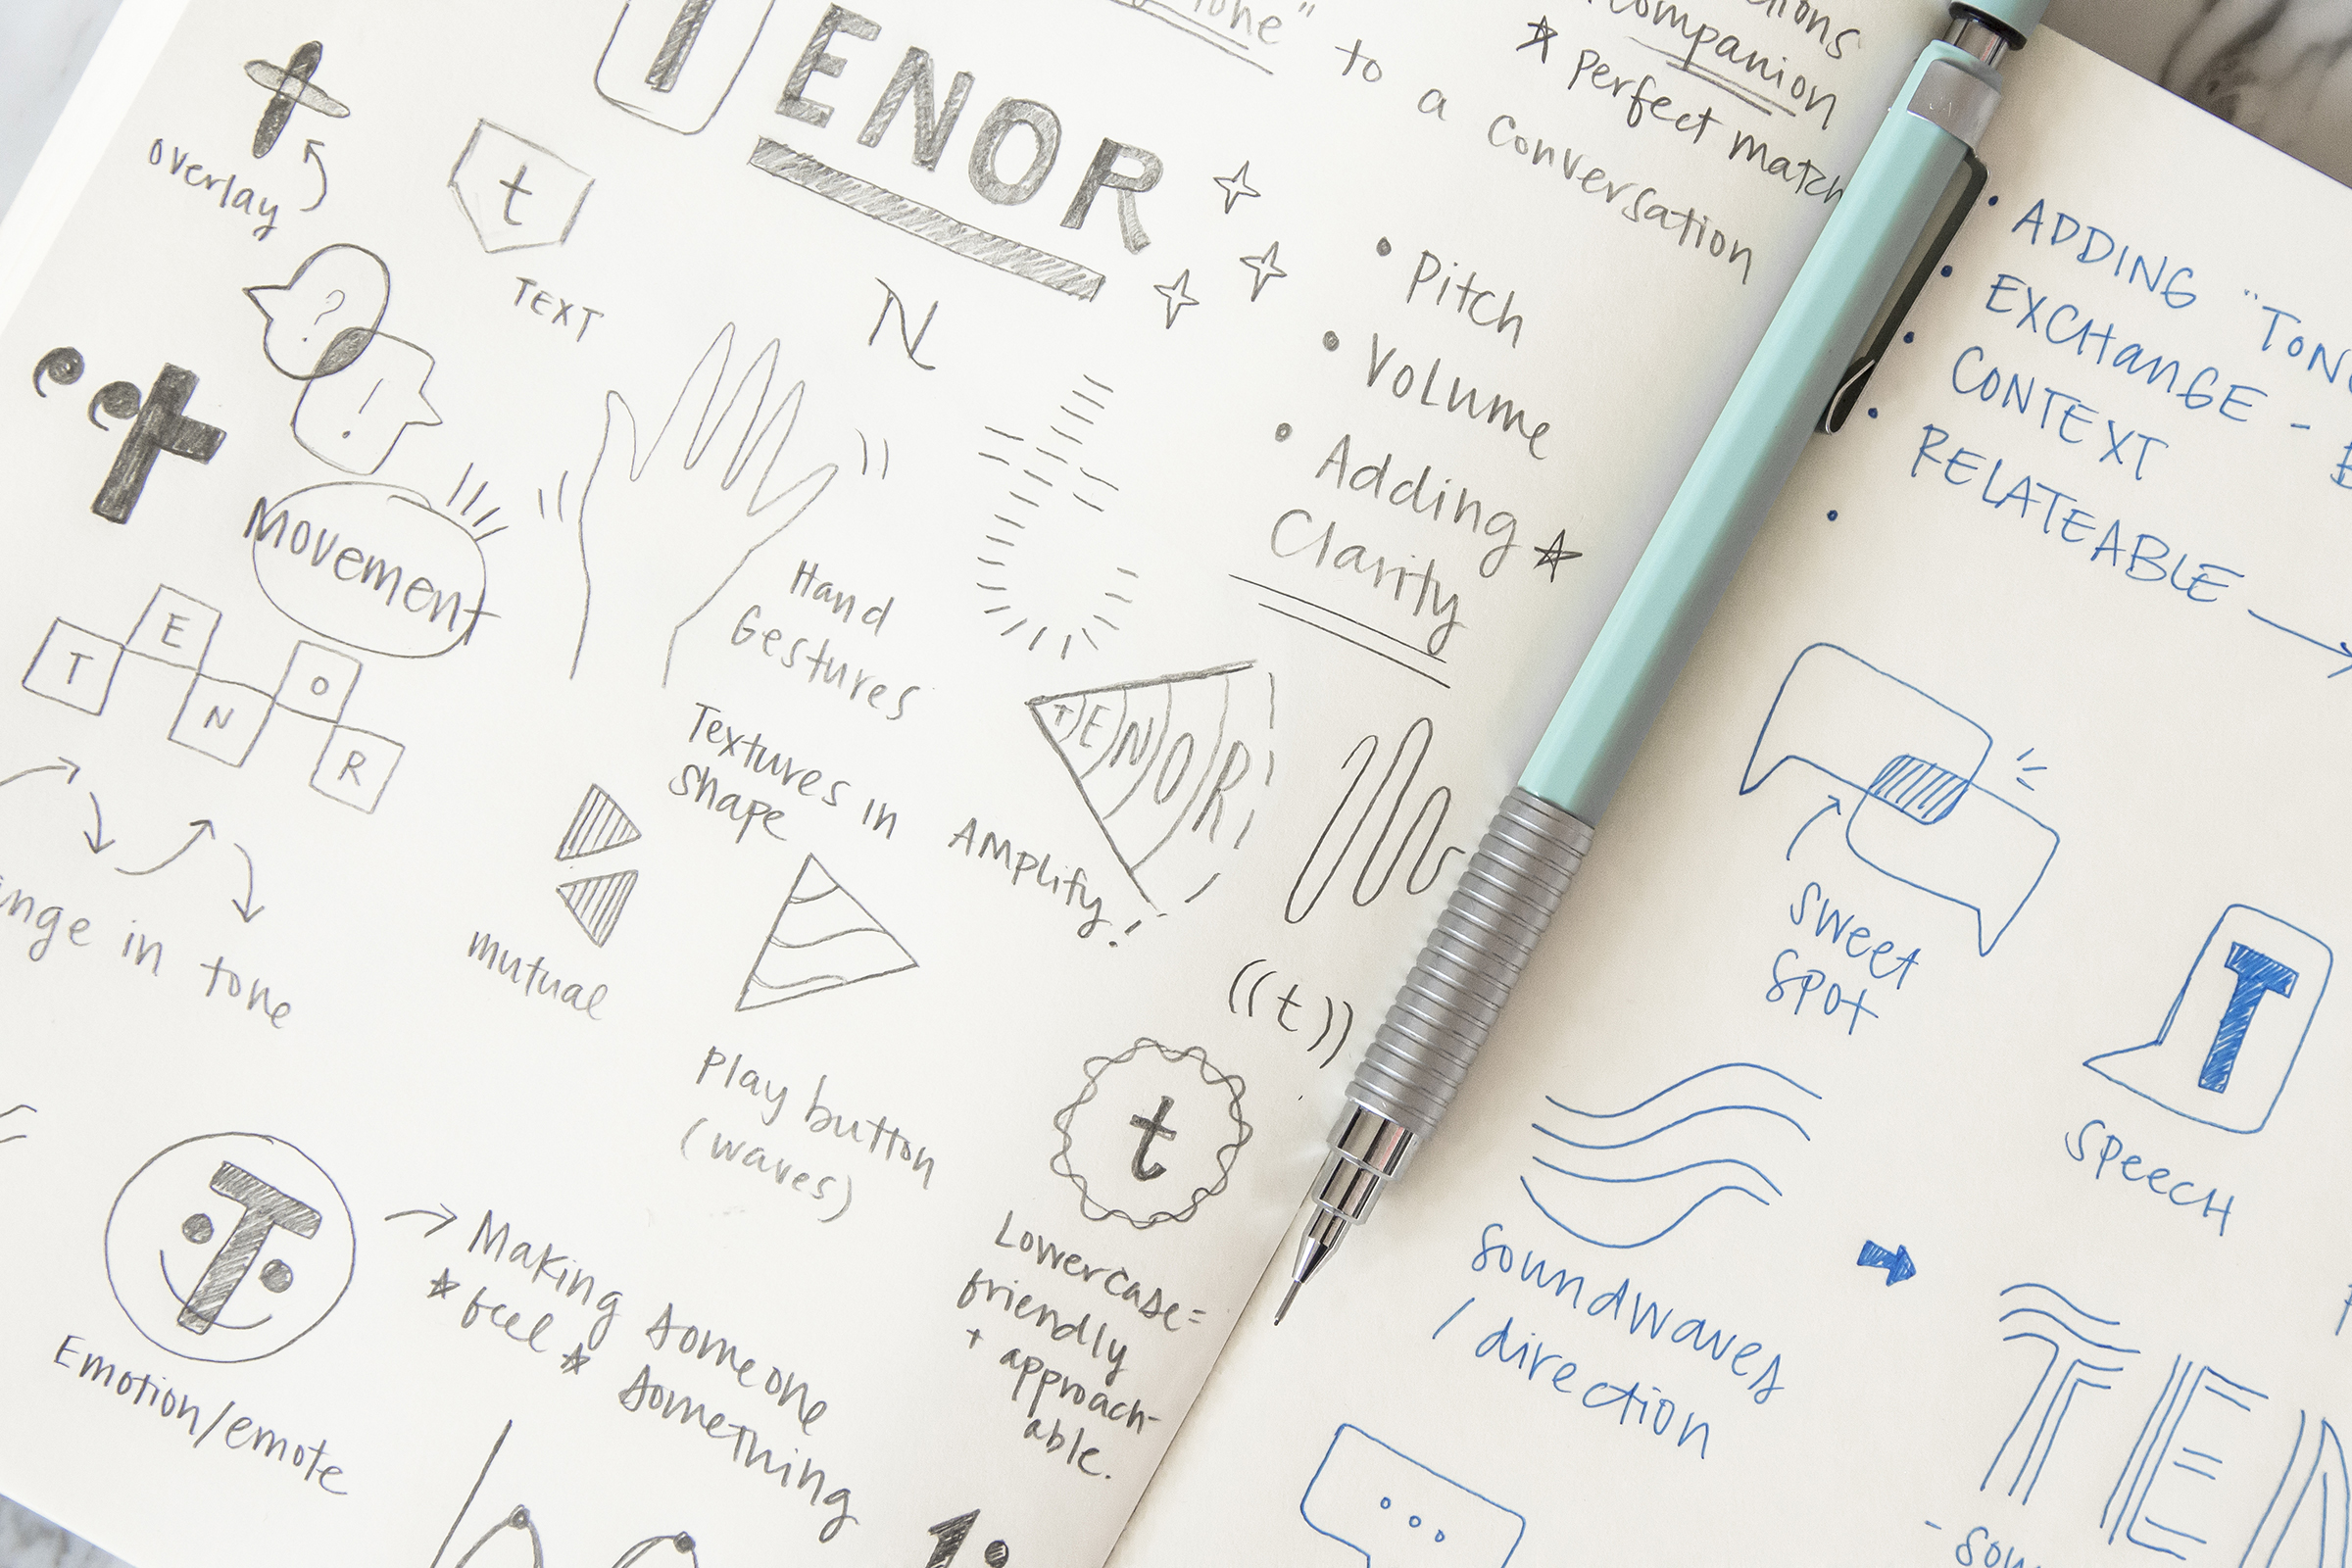 TENOR
to a conversation
companion
☆ perfect match
t
overlay
t
TEXT
N
?
!
Movement
• Pitch
• Volume
• Adding ☆
Clarity
Hand
Gestures
T E N O R
in tone
Textures in
shape
mutual
Play button
(waves)
TENOR
AMplify!
((t))
t
Lowercase=
friendly
+ approach-
able.
T
Emotion/emote
→ Making someone
☆ feel ☆ something
• ADDING "TON
• EXCHANGE -
• CONTEXT
• RELATEABLE →
•
sweet
spot
T
SPEECH
soundwaves
/ direction
TEN
...